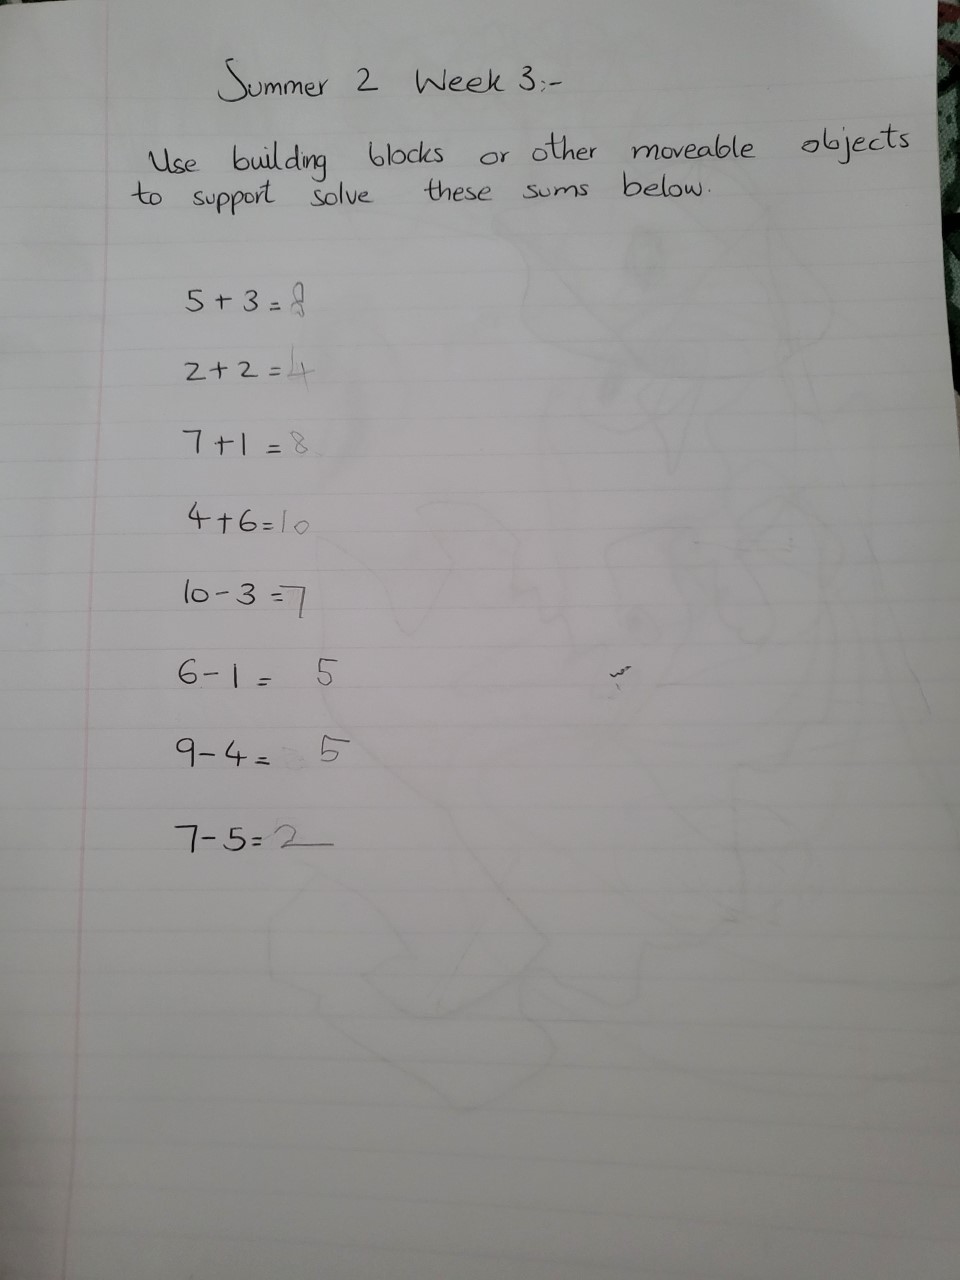 Summer 2 Week 3:-
Use building blocks or other moveable objects
to support solve these sums below.
5 + 3 = 8
2 + 2 = 4
7 + 1 = 8
4 + 6 = 10
10 - 3 = 7
6 - 1 = 5
9 - 4 = 5
7 - 5 = 2